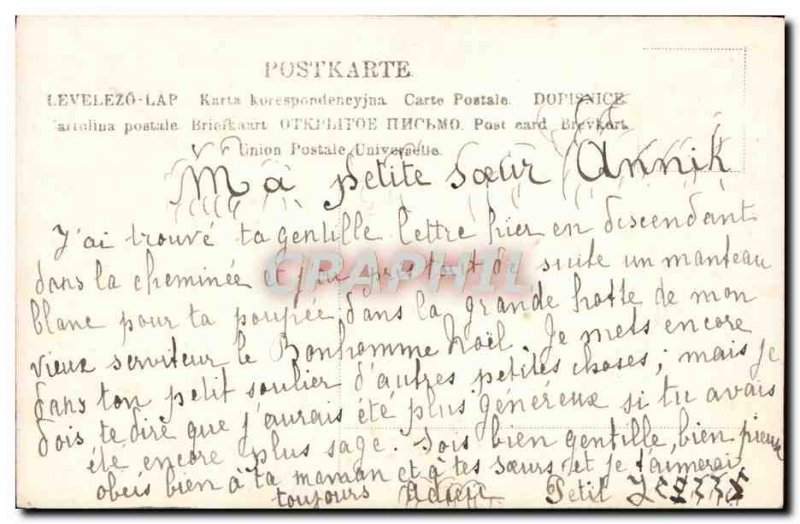 POSTKARTE
LEVELEZŐ-LAP Karta korespondencyjna Carte Postale. DOPISNICE
Cartolina postale Briefkaart ОТКРЫТОЕ ПИСЬМО. Post card Brevkort
Union Postale Universelle.
Ma petite sœur Annik
J'ai trouvé ta gentille lettre hier en descendant
dans la cheminée et j'ai pris tout de suite un manteau
blanc pour ta poupée, dans la grande hotte de mon
vieux serviteur le Bonhomme Noël. Je mets encore
dans ton petit soulier d'autres petites choses; mais je
dois te dire que j'aurais été plus généreux si tu avais
été encore plus sage. Sois bien gentille, bien pieuse
obéis bien à ta maman et à tes sœurs et je t'aimerai
toujours Adieu Petit
CPAPHIL